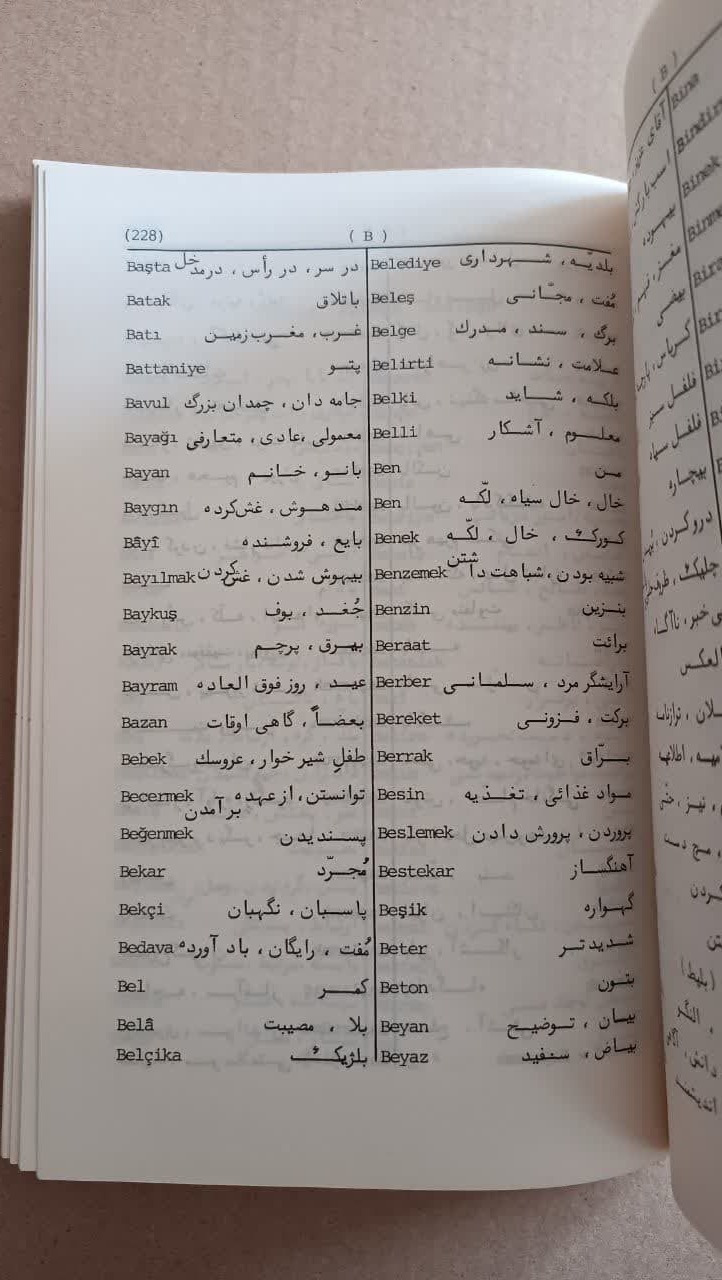 (228) ( B )
Başta در سر ، در رأس ، درمدخل
Batak باتلاق
Batı غرب، مغرب زمین
Battaniye پتو
Bavul جامه دان ، چمدان بزرگ
Bayağı معمولی ،عادی ، متعارفی
Bayan بانو ، خانم
Baygın مدهوش ، غش کرده
Bâyî بایع ، فروشنده
Bayılmak بیهوش شدن ، غش کردن
Baykuş جُغد ، بوف
Bayrak بیرق ، پرچم
Bayram عید ، روز فوق العاده
Bazan بعضاً ، گاهی اوقات
Bebek طفلِ شیر خوار ، عروسك
Becermek توانستن ، از عهده بر آمدن
Beğenmek پسندیدن
Bekar مُجرّد
Bekçi پاسبان ، نگهبان
Bedava مُفت ، رایگان ، باد آورده
Bel کمر
Belâ بلا ، مصیبت
Belçika بلژیك
Belediye بلدیّه ، شهرداری
Beleş مُفت ، مجّانی
Belge برگ ، سند ، مدرك
Belirti علامت ، نشانه
Belki بلکه ، شاید
Belli معلوم ، آشکار
Ben من
Ben خال ، خال سیاه ، لکّه
Benek کورك ، خال ، لکّه
Benzemek شبیه بودن ، شباهت داشتن
Benzin بنزین
Beraat برائت
Berber آرایشگر مرد ، سلمانی
Bereket برکت ، فزونی
Berrak برّاق
Besin مواد غذائی ، تغذیه
Beslemek پروردن ، پرورش دادن
Bestekar آهنگساز
Beşik گهواره
Beter شدیدتر
Beton بتون
Beyan بیان ، توضیح
Beyaz بیاض ، سفید
( B )
Bina
Binek
بیهوده
فلفل سبز
فلفل سیاه
بیچاره